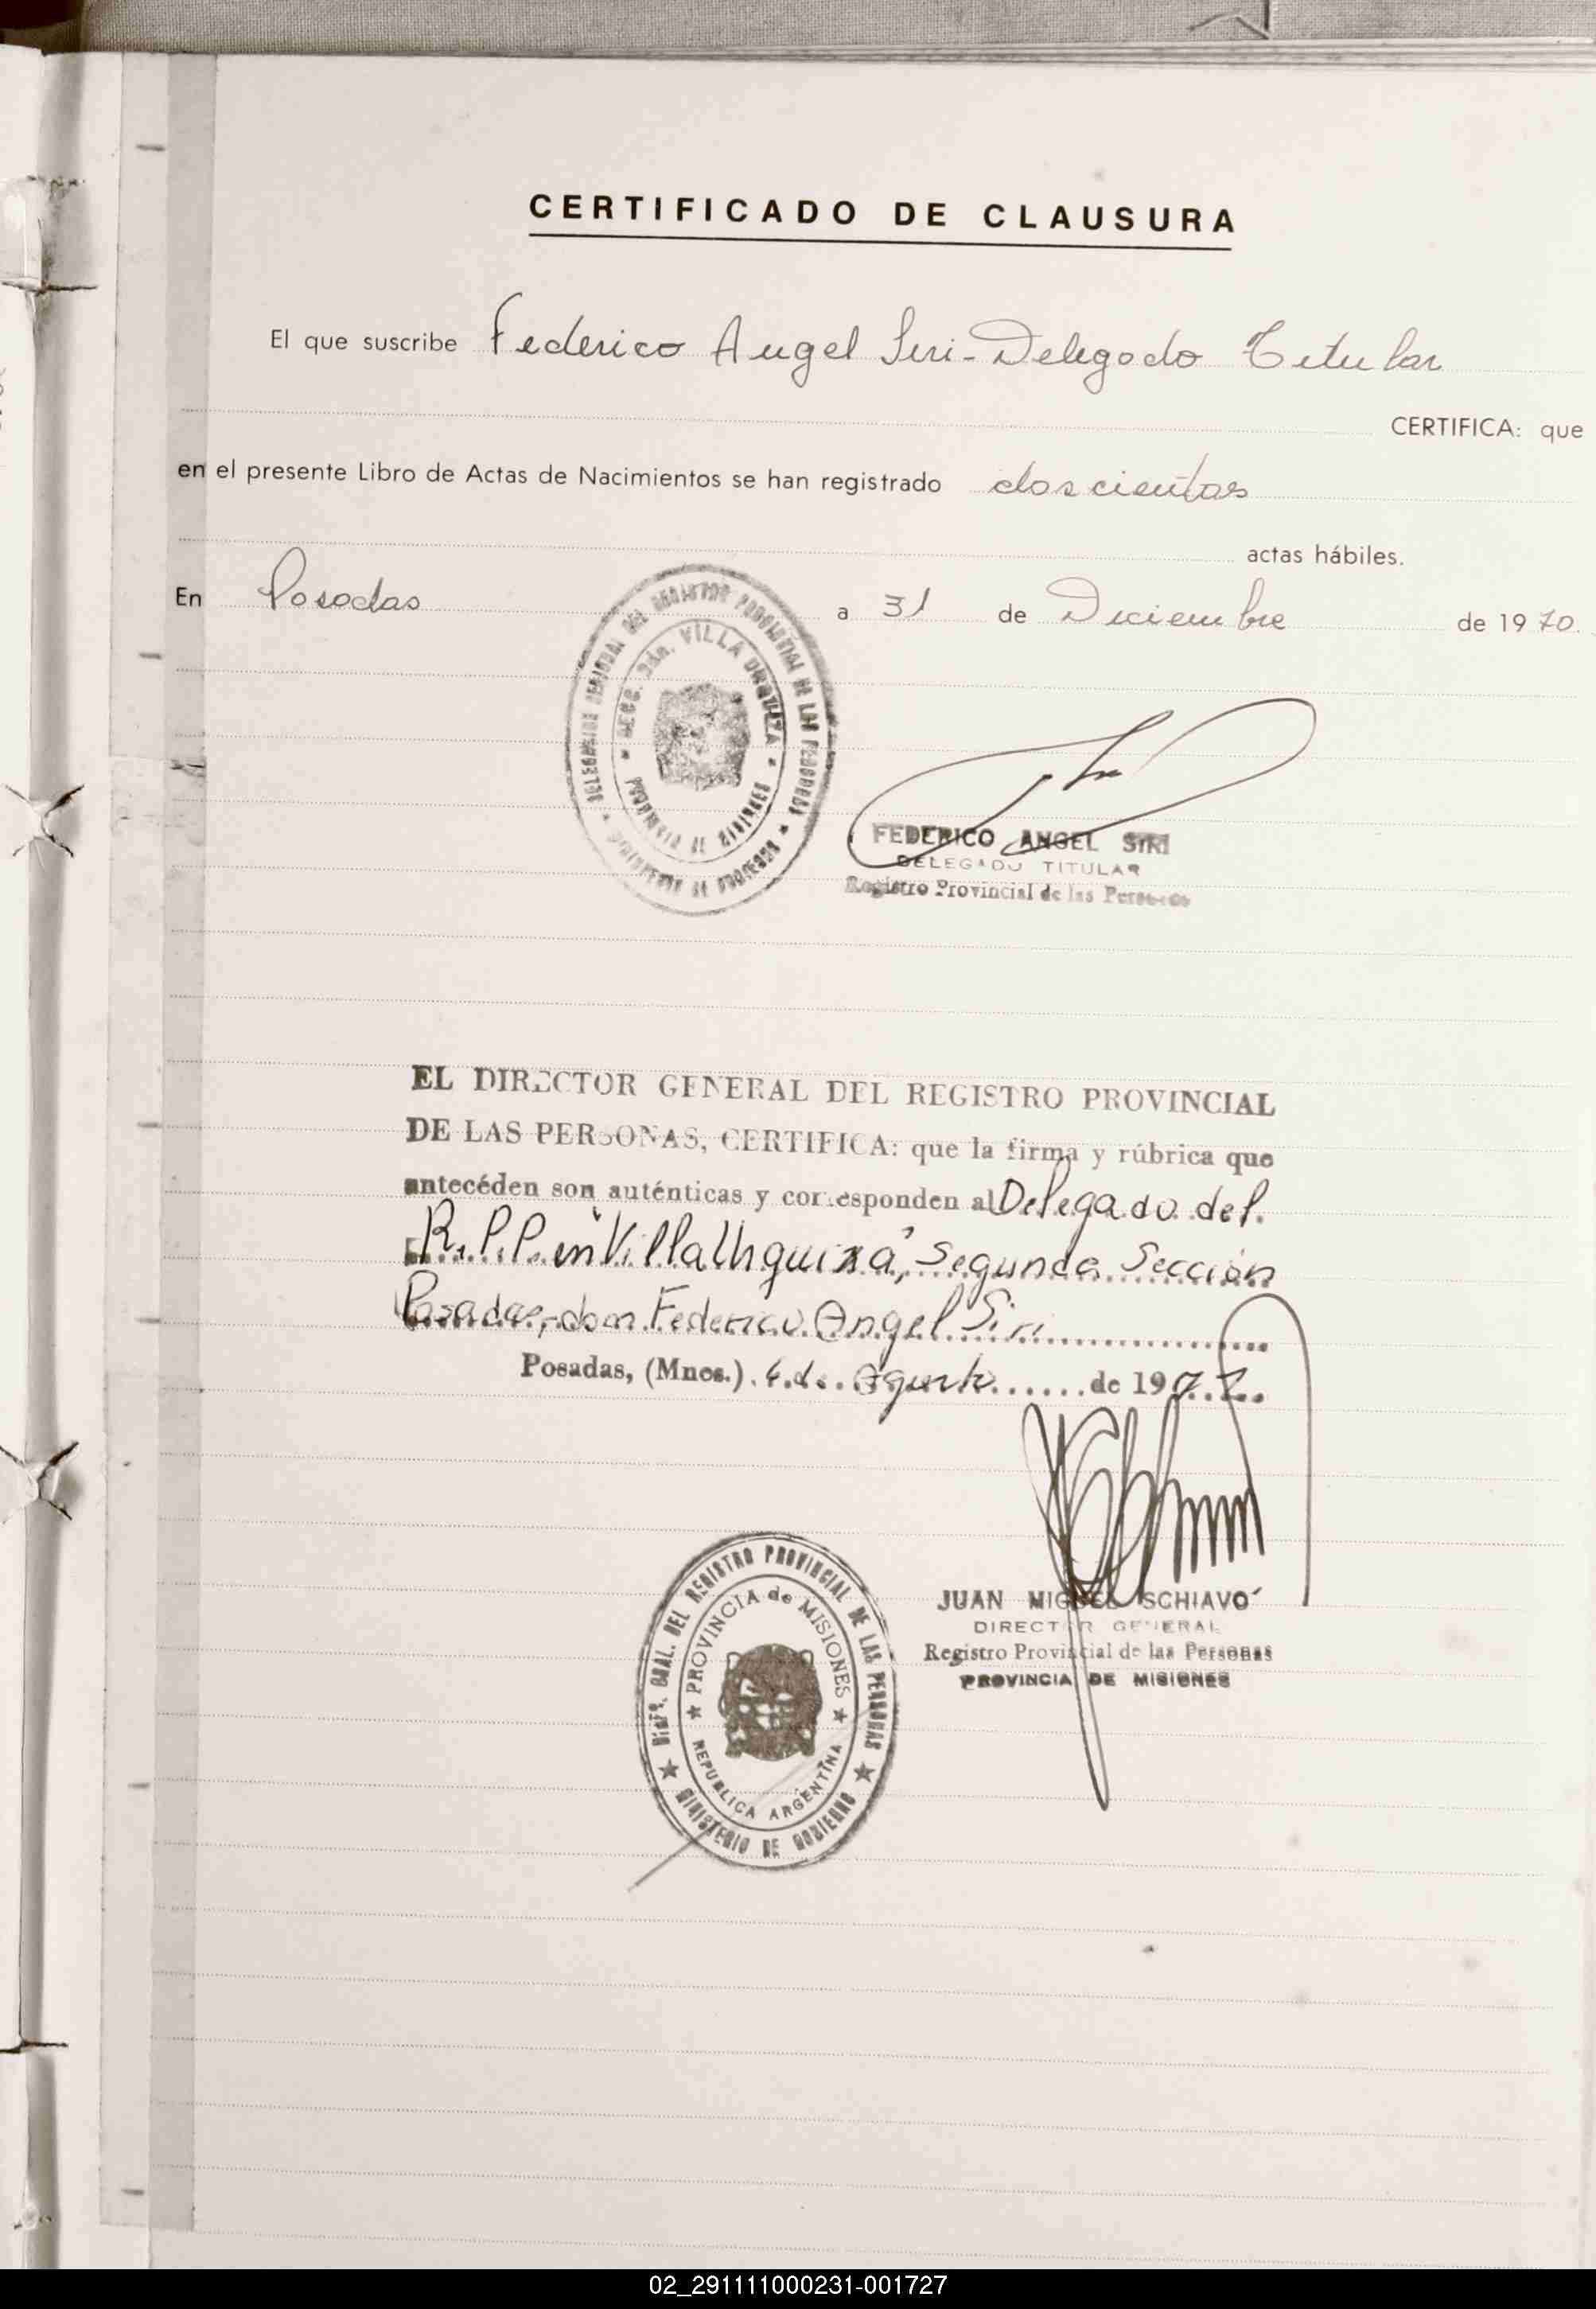 CERTIFICADO DE CLAUSURA
El que suscribe Federico Angel Siri - Delegado Titular
CERTIFICA: que
en el presente Libro de Actas de Nacimientos se han registrado doscientas
actas hábiles.
En Posadas a 31 de Diciembre de 1970.
DELEGACION REGIONAL DEL REGISTRO PROVINCIAL DE LAS PERSONAS
SECC. 2da. VILLA URQUIZA
PROVINCIA DE MISIONES
FEDERICO ANGEL SIRI
DELEGADO TITULAR
Registro Provincial de las Personas
EL DIRECTOR GENERAL DEL REGISTRO PROVINCIAL
DE LAS PERSONAS, CERTIFICA: que la firma y rúbrica que
antecéden son auténticas y corresponden al Delegado del
R.P.P. en "Villa Urquiza", Segunda Sección
Posadas, don Federico Angel Siri
Posadas, (Mnes.) 4 de Agosto de 197
JUAN MIGUEL SCHIAVO
DIRECTOR GENERAL
Registro Provincial de las Personas
PROVINCIA DE MISIONES
Dirc. GRAL. DEL REGISTRO PROVINCIAL DE LAS PERSONAS
PROVINCIA de MISIONES
REPUBLICA ARGENTINA
MINISTERIO DE GOBIERNO
02_291111000231-001727